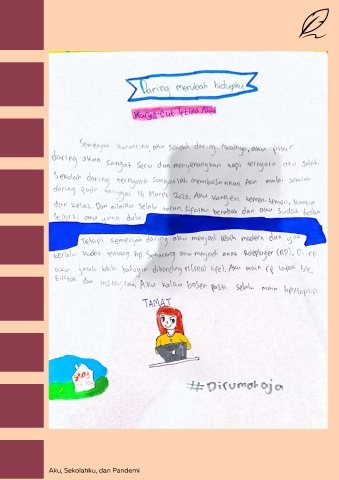 Daring merubah hidupku
Karya: Cut Iftina Alya
Semenjak karantina aku sekolah daring. Awalnya, aku pikir
daring akan sangat seru dan menyenangkan tapi ternyata aku salah.
Sekolah daring ternyata sangatlah membosankan. Aku mulai sekolah
daring pada tanggal 16 Maret 2020. Aku kangen temen-temen, kantin
dan kelas. Dan nilaiku selalu turun, sifatku berubah dan aku sudah bukan
seperti aku yang dulu.
Tetapi semenjak daring aku menjadi lebih modern dan gak
terlalu kudet tentang hp. Sekarang aku menjadi anak Roleplayer (RP). Di rp
aku jauh lebih bahagia dibanding rl (real life). Aku main rp
tiktok dan instagram. Aku kalau bosen pasti selalu main hp/laptop
TAMAT
#Dirumahaja
Aku, Sekolahku, dan Pandemi